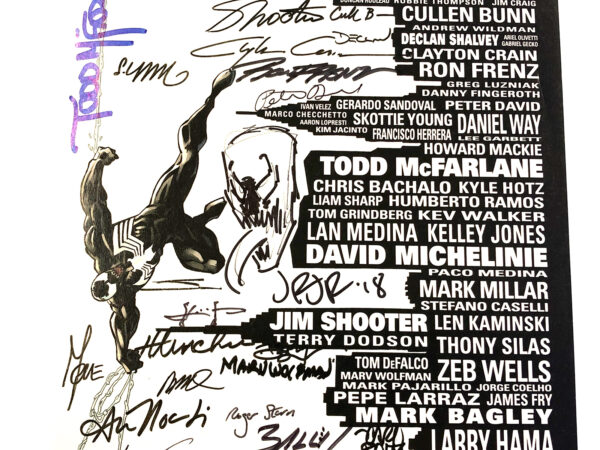 DUNCAN ROULEAU ROBBIE THOMPSON JIM CRAIG
Shooter Cull B
CULLEN BUNN
ANDREW WILDMAN
Declan
DECLAN SHALVEY ARIEL OLIVETTI
GABRIEL GECKO
CLAYTON CRAIN
RON FRENZ
GREG LUZNIAK
DANNY FINGEROTH
IVAN VELEZ GERARDO SANDOVAL PETER DAVID
MARCO CHECCHETTO SKOTTIE YOUNG DANIEL WAY
AARON LOPRESTI
KIM JACINTO FRANCISCO HERRERA LEE GARBETT
HOWARD MACKIE
TODD McFARLANE
CHRIS BACHALO KYLE HOTZ
LIAM SHARP HUMBERTO RAMOS
TOM GRINDBERG KEV WALKER
LAN MEDINA KELLEY JONES
DAVID MICHELINIE
PACO MEDINA
JRJR '18
MARK MILLAR
STEFANO CASELLI
JIM SHOOTER LEN KAMINSKI
TERRY DODSON THONY SILAS
MARV WOLFMAN
TOM DeFALCO ZEB WELLS
MARV WOLFMAN
MARK PAJARILLO JORGE COELHO
PEPE LARRAZ JAMES FRY
Roger Stern
MARK BAGLEY
LARRY HAMA